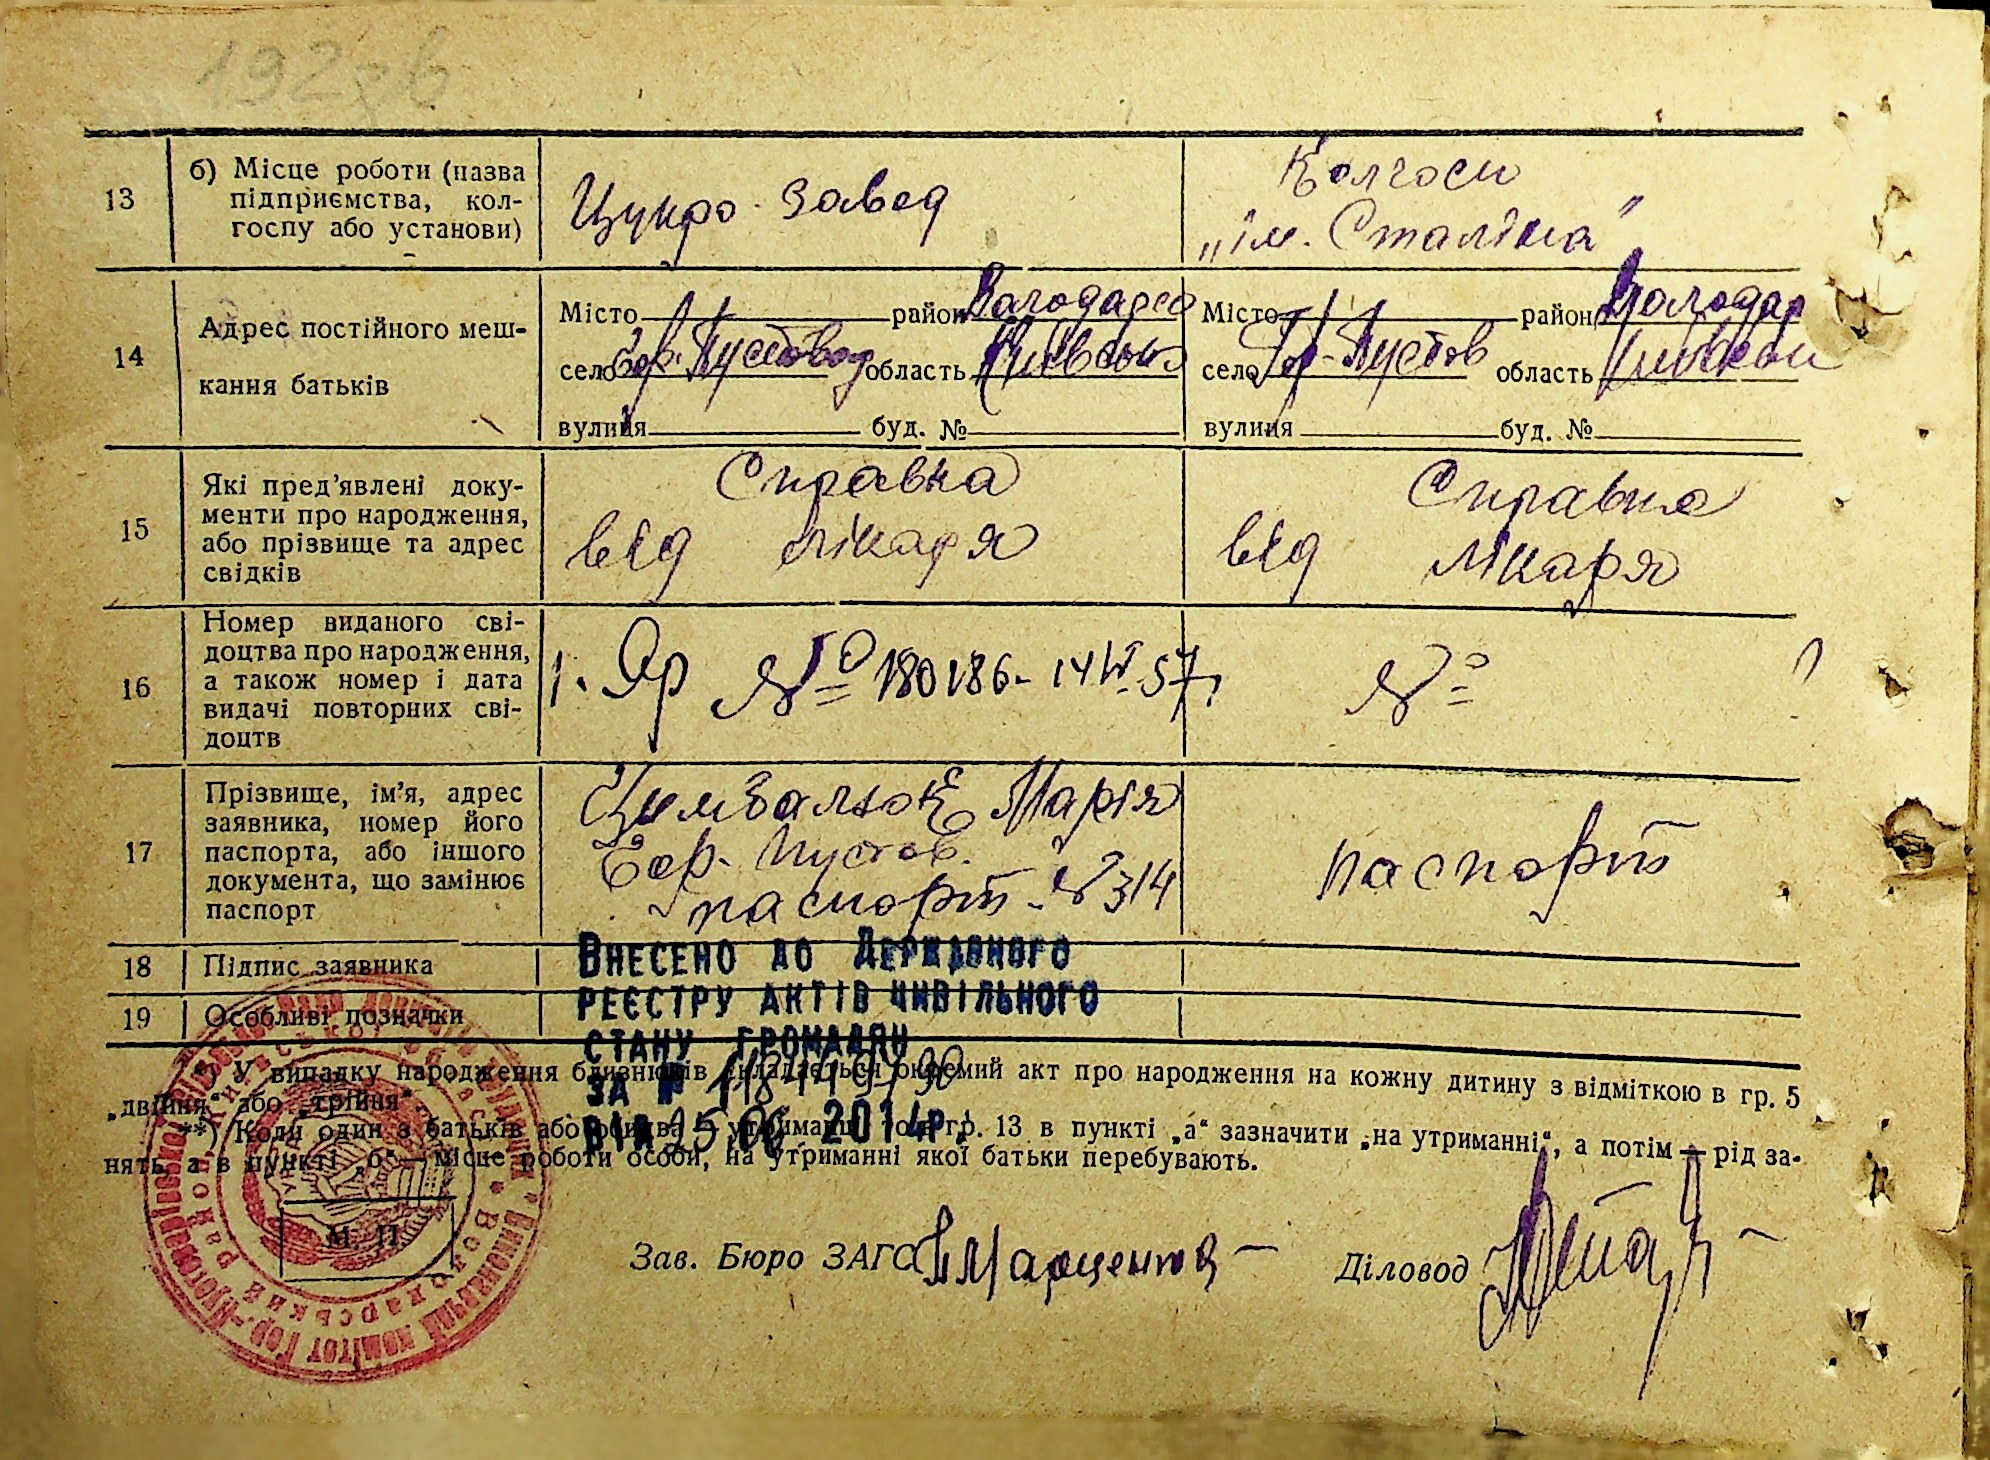 192зв
13
б) Місце роботи (назва
підприємства, кол-
госпу або установи)
Цукро-завод
Колгосп
„ім. Сталіна"
14
Адрес постійного меш-
кання батьків
Місто район Володарсь
село Гор-Пустовар область Київська
вулиця буд. №
Місто район Володар
село Гор-Пустов область
вулиця буд. №
15
Які пред'явлені доку-
менти про народження,
або прізвище та адрес
свідків
Справка
від лікаря
Справка
від лікаря
16
Номер виданого сві-
доцтва про народження,
а також номер і дата
видачі повторних сві-
доцтв
1. № 180186- 14 57
№
17
Прізвище, ім'я, адрес
заявника, номер його
паспорта, або іншого
документа, що замінює
паспорт
Цимбалюк Марія
Гор. Пустов.
паспорт № 314
паспорт
18
Підпис заявника
19
Особливі позначки
Внесено до Державного
реєстру актів цивільного
стану громадян
за №
від 25.06 2014р.
*) У випадку народження близнюків складається окремий акт про народження на кожну дитину з відміткою в гр. 5
„двійня" або „трійня".
**) Коли один з батьків або обидва — утриманці, то в гр. 13 в пункті „а" зазначити „на утриманні", а потім — рід за-
нять, а в пункті „б" — місце роботи особи, на утриманні якої батьки перебувають.
М. П.
Зав. Бюро ЗАГС
Діловод